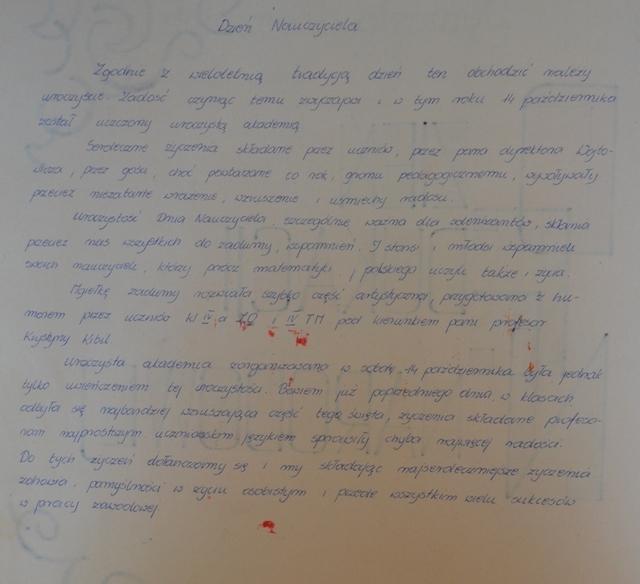 Dzień Nauczyciela
Zgodnie z wieloletnią tradycją dzień ten obchodzić należy
uroczyście. Zadość czyniąc temu zwyczajowi i w tym roku 14 października
został uczczony uroczystą akademią.
Serdeczne życzenia składane przez uczniów, przez pana dyrektora Wojto-
wicza, przez gości, choć powtarzane co rok, gronu pedagogicznemu, wywoływały
przecież niezatarte wrażenie, wzruszenie i uśmiechy radości.
Uroczystość Dnia Nauczyciela, szczególnie ważna dla solenizantów, skłania
przecież nas wszystkich do zadumy, wspomnień. I starsi i młodsi wspominali
swoich nauczycieli, którzy prócz matematyki, j. polskiego uczyli także i życia.
Mgiełkę zadumy rozwiała szybko część artystyczna, przygotowana z hu-
morem przez uczniów kl IV a LO i IV TM pod kierunkiem pani profesor
Krystyny Kibil.
Uroczysta akademia zorganizowana w sobotę 14 października była jednak
tylko uwieńczeniem tej uroczystości. Bowiem już poprzedniego dnia w klasach
odbyła się najbardziej wzruszająca część tego święta, życzenia składane profeso-
rom najprostszym uczniowskim językiem sprawiły chyba najwięcej radości.
Do tych życzeń dołanczamy się i my składając najserdeczniejsze życzenia
zdrowia, pomyślności w życiu osobistym i przede wszystkim wielu sukcesów
w pracy zawodowej.